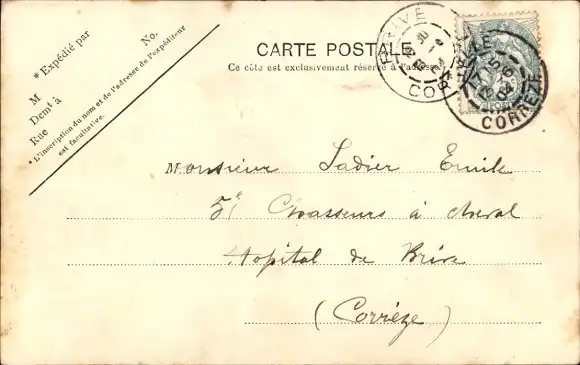 * Expédié par
M
Demt à
No.
Rue
* L'inscription du nom et de l'adresse de l'expéditeur
est facultative.
CARTE POSTALE
Ce côté est exclusivement réservé à l'adresse.
BRIVE
CORRÈZE
CORRÈZE
Monsieur Ladier Emile
5e Chasseurs à cheval
Hopital de Brive
(Corrèze)